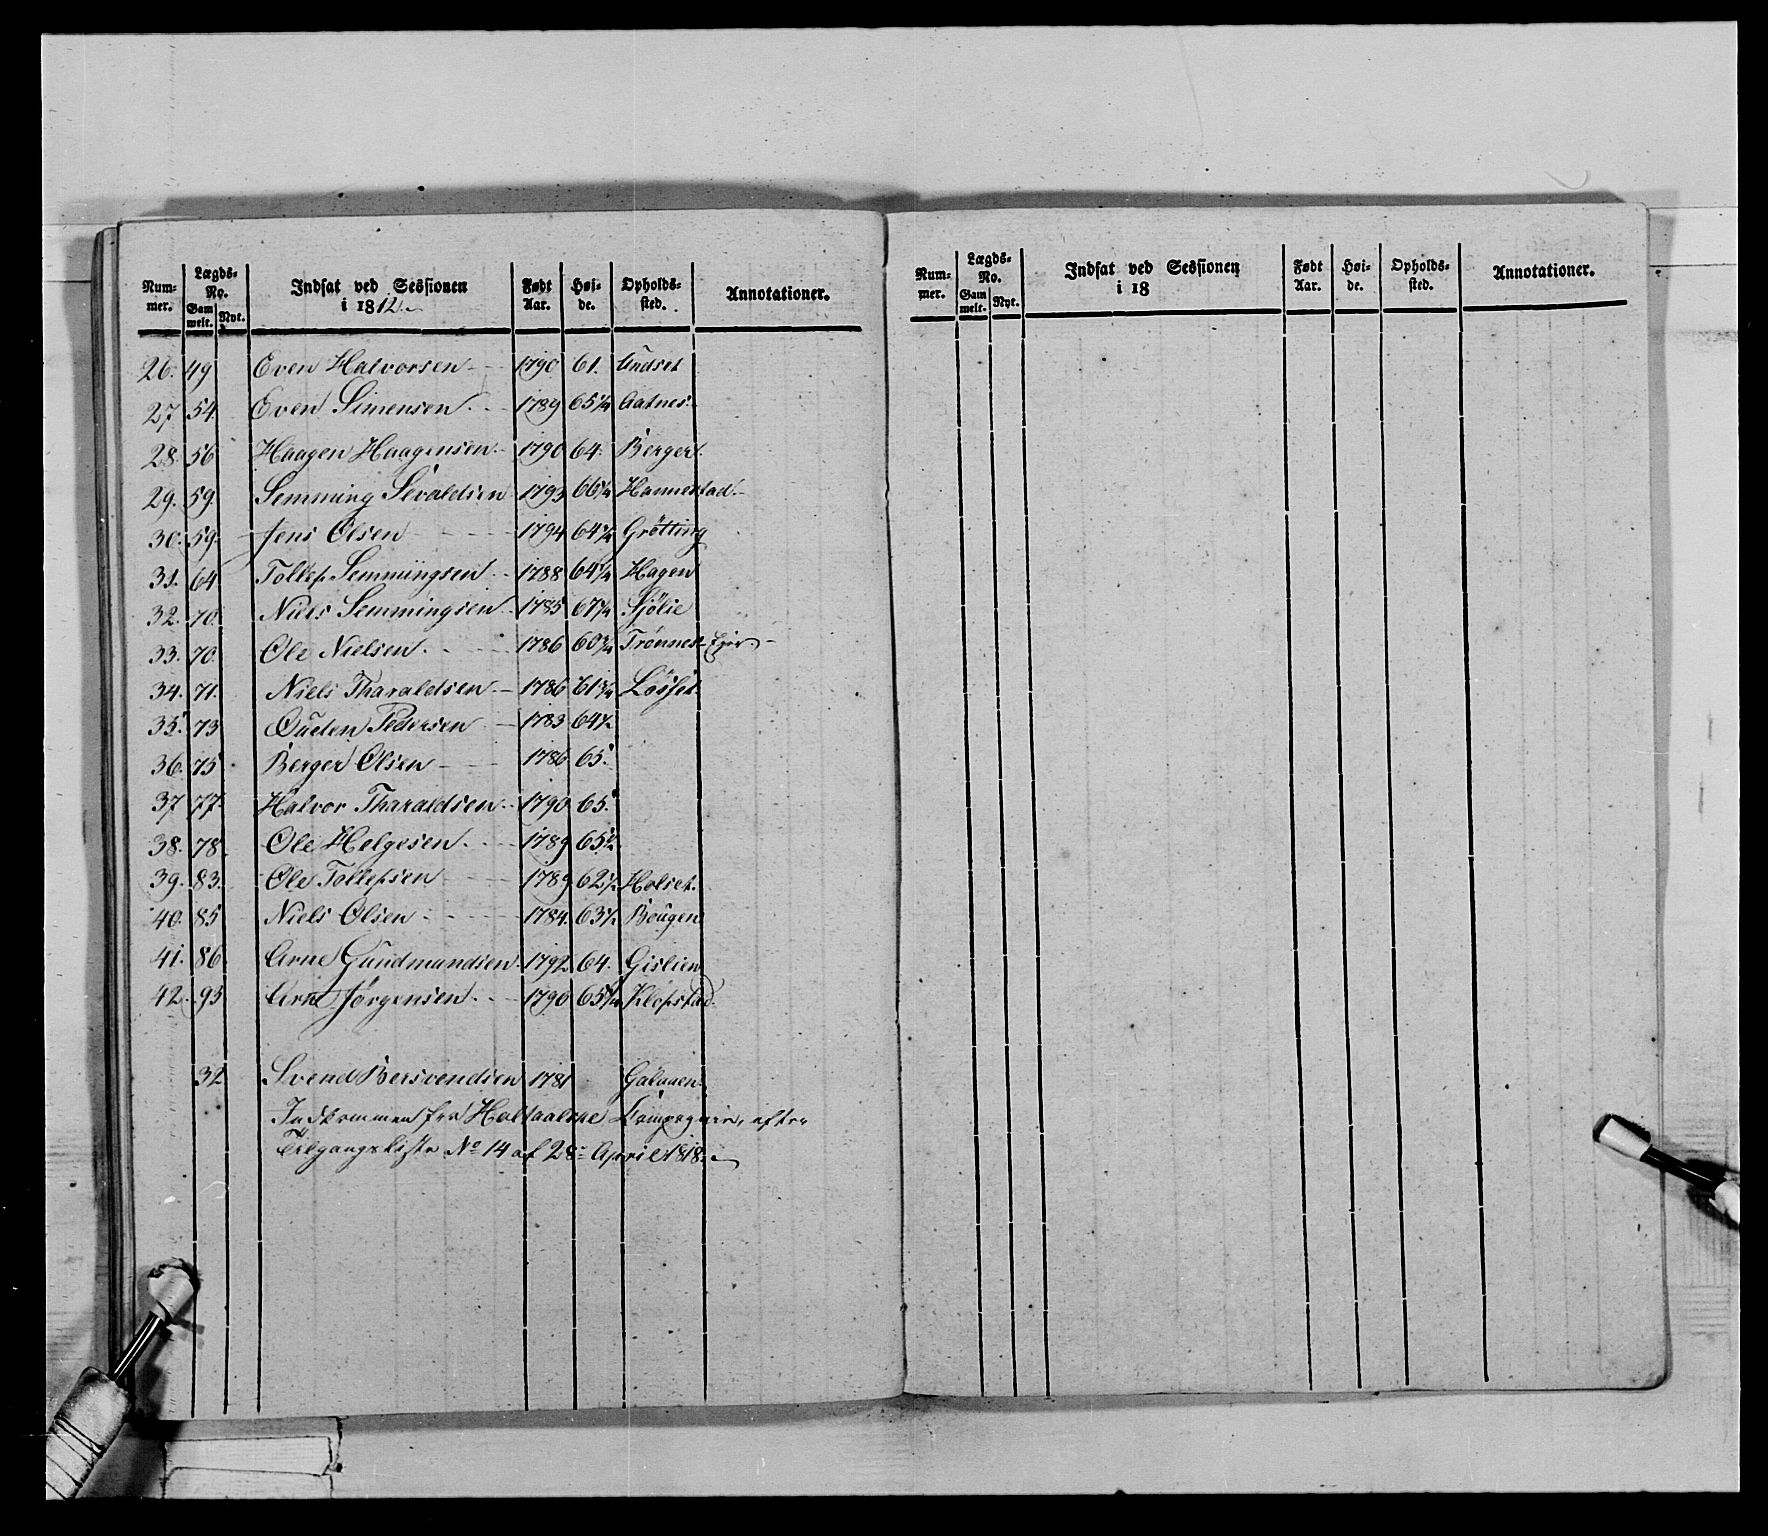 Num-mer. Lægds-No. Gammelt. Nyt. Indsat ved Sessionen i 1812. Født Aar. Høi-de. Opholds-sted. Annotationer.
26. 49 Even Halvorsen 1790 61. Undset
27 54. Even Simensen 1789 65 1/4 Aatnes.
28. 56 Haagen Haagensen 1790 64. Berger.
29. 59. Semming Sivaldsen 1793 66 1/4 Hannestad.
30. 59. Jens Olsen 1794 64 Grötting
31. 64 Tollef Semmingsen 1788 64 Hagen
32. 70. Niels Semmingsen 1785 67 1/4 Sjölie
33. 70. Ole Nielsen. 1786 60 3/4 Trönnes
34. 71. Niels Tharaldsen 1786 61 3/4 Lösset.
35. 73 Ouden Pedersen 1783 64 1/2
36. 75 Berger Olsen 1786 65.
37 77. Halvor Tharaldsen 1790 65.
38. 78. Ole Helgesen. 1789 65 1/2
39. 83. Ole Tollefsen 1789 62 1/2 Holset.
40. 85 Niels Olsen 1784. 63 1/2 Bougen
41. 86. Arne Gundmundsen 1792 64. Gislien
42. 95 Arne Jörgensen. 1790 65 1/4 Klopstad.
32 Svend Bersvendsen 1781 Galaaen.
Indkommen fra Holtaalske Compagnie, efter
Tilgangsliste No 14 af 28de April 1818.
Num-mer. Lægds-No. Gammelt. Nyt. Indsat ved Sessionen i 18 Født Aar. Høi-de. Opholds-sted. Annotationer.